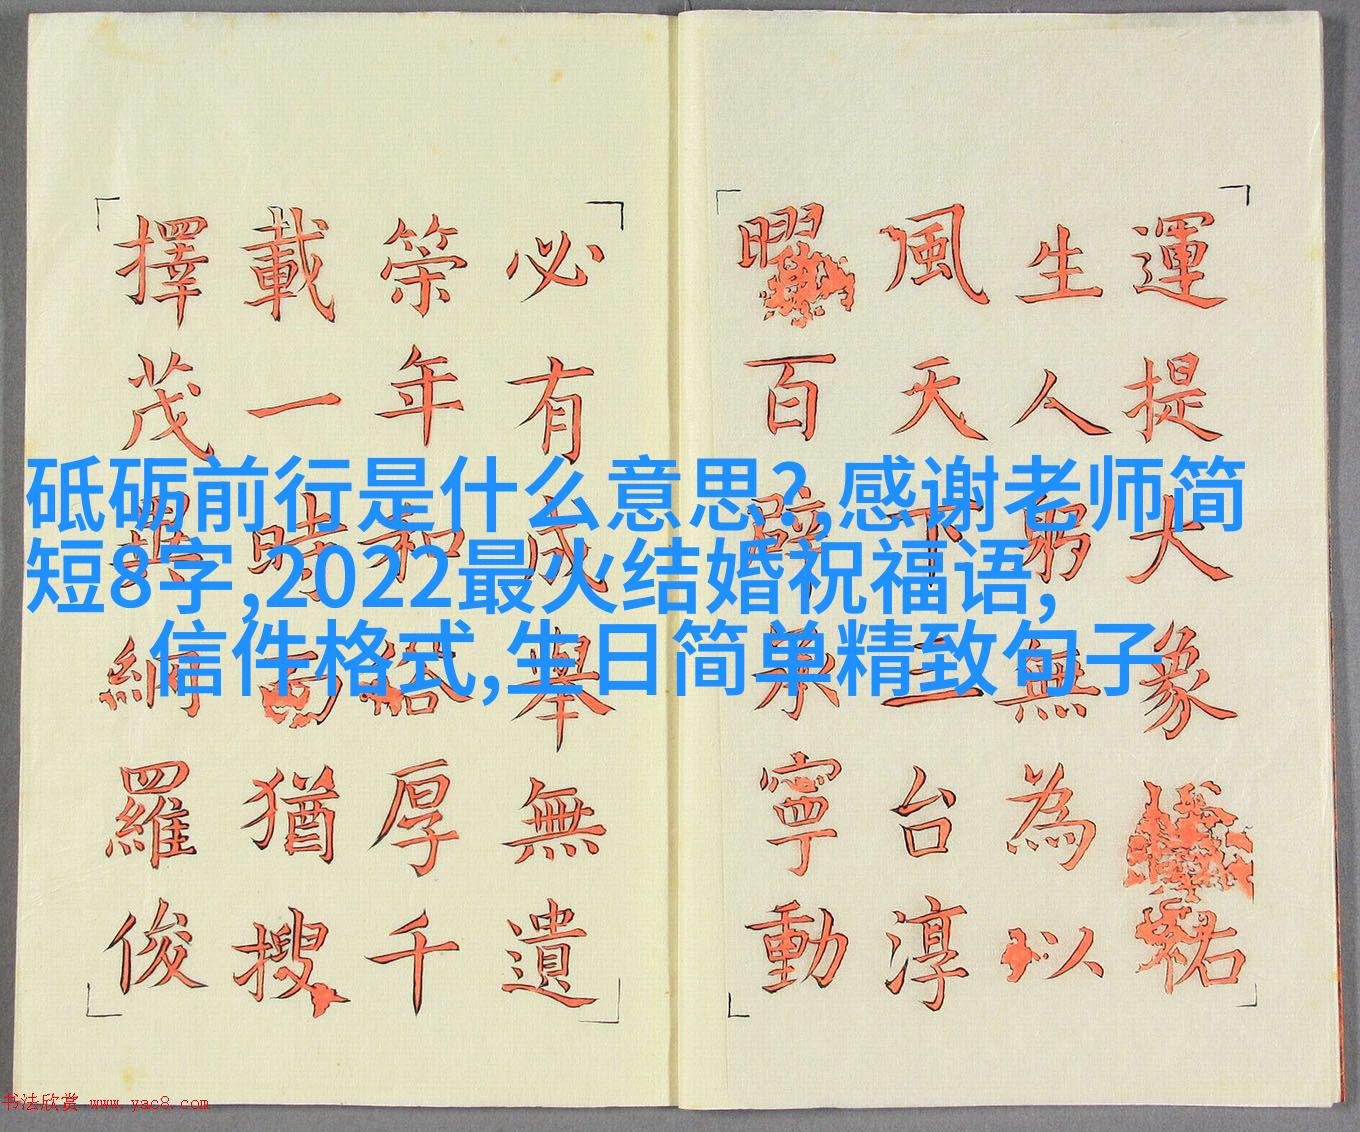 砥砺前行是什么意思?,感谢老师简
短8字,2022最火结婚祝福语,
信件格式,生日简单精致句子
運提大象祐
生人躬無為以
風天下三台淳
曜百辟承寧動
必有成舉無遺
策年和俗厚千
載一時猶搜
擇茂異網羅俊
书法欣赏 www.yac8.com